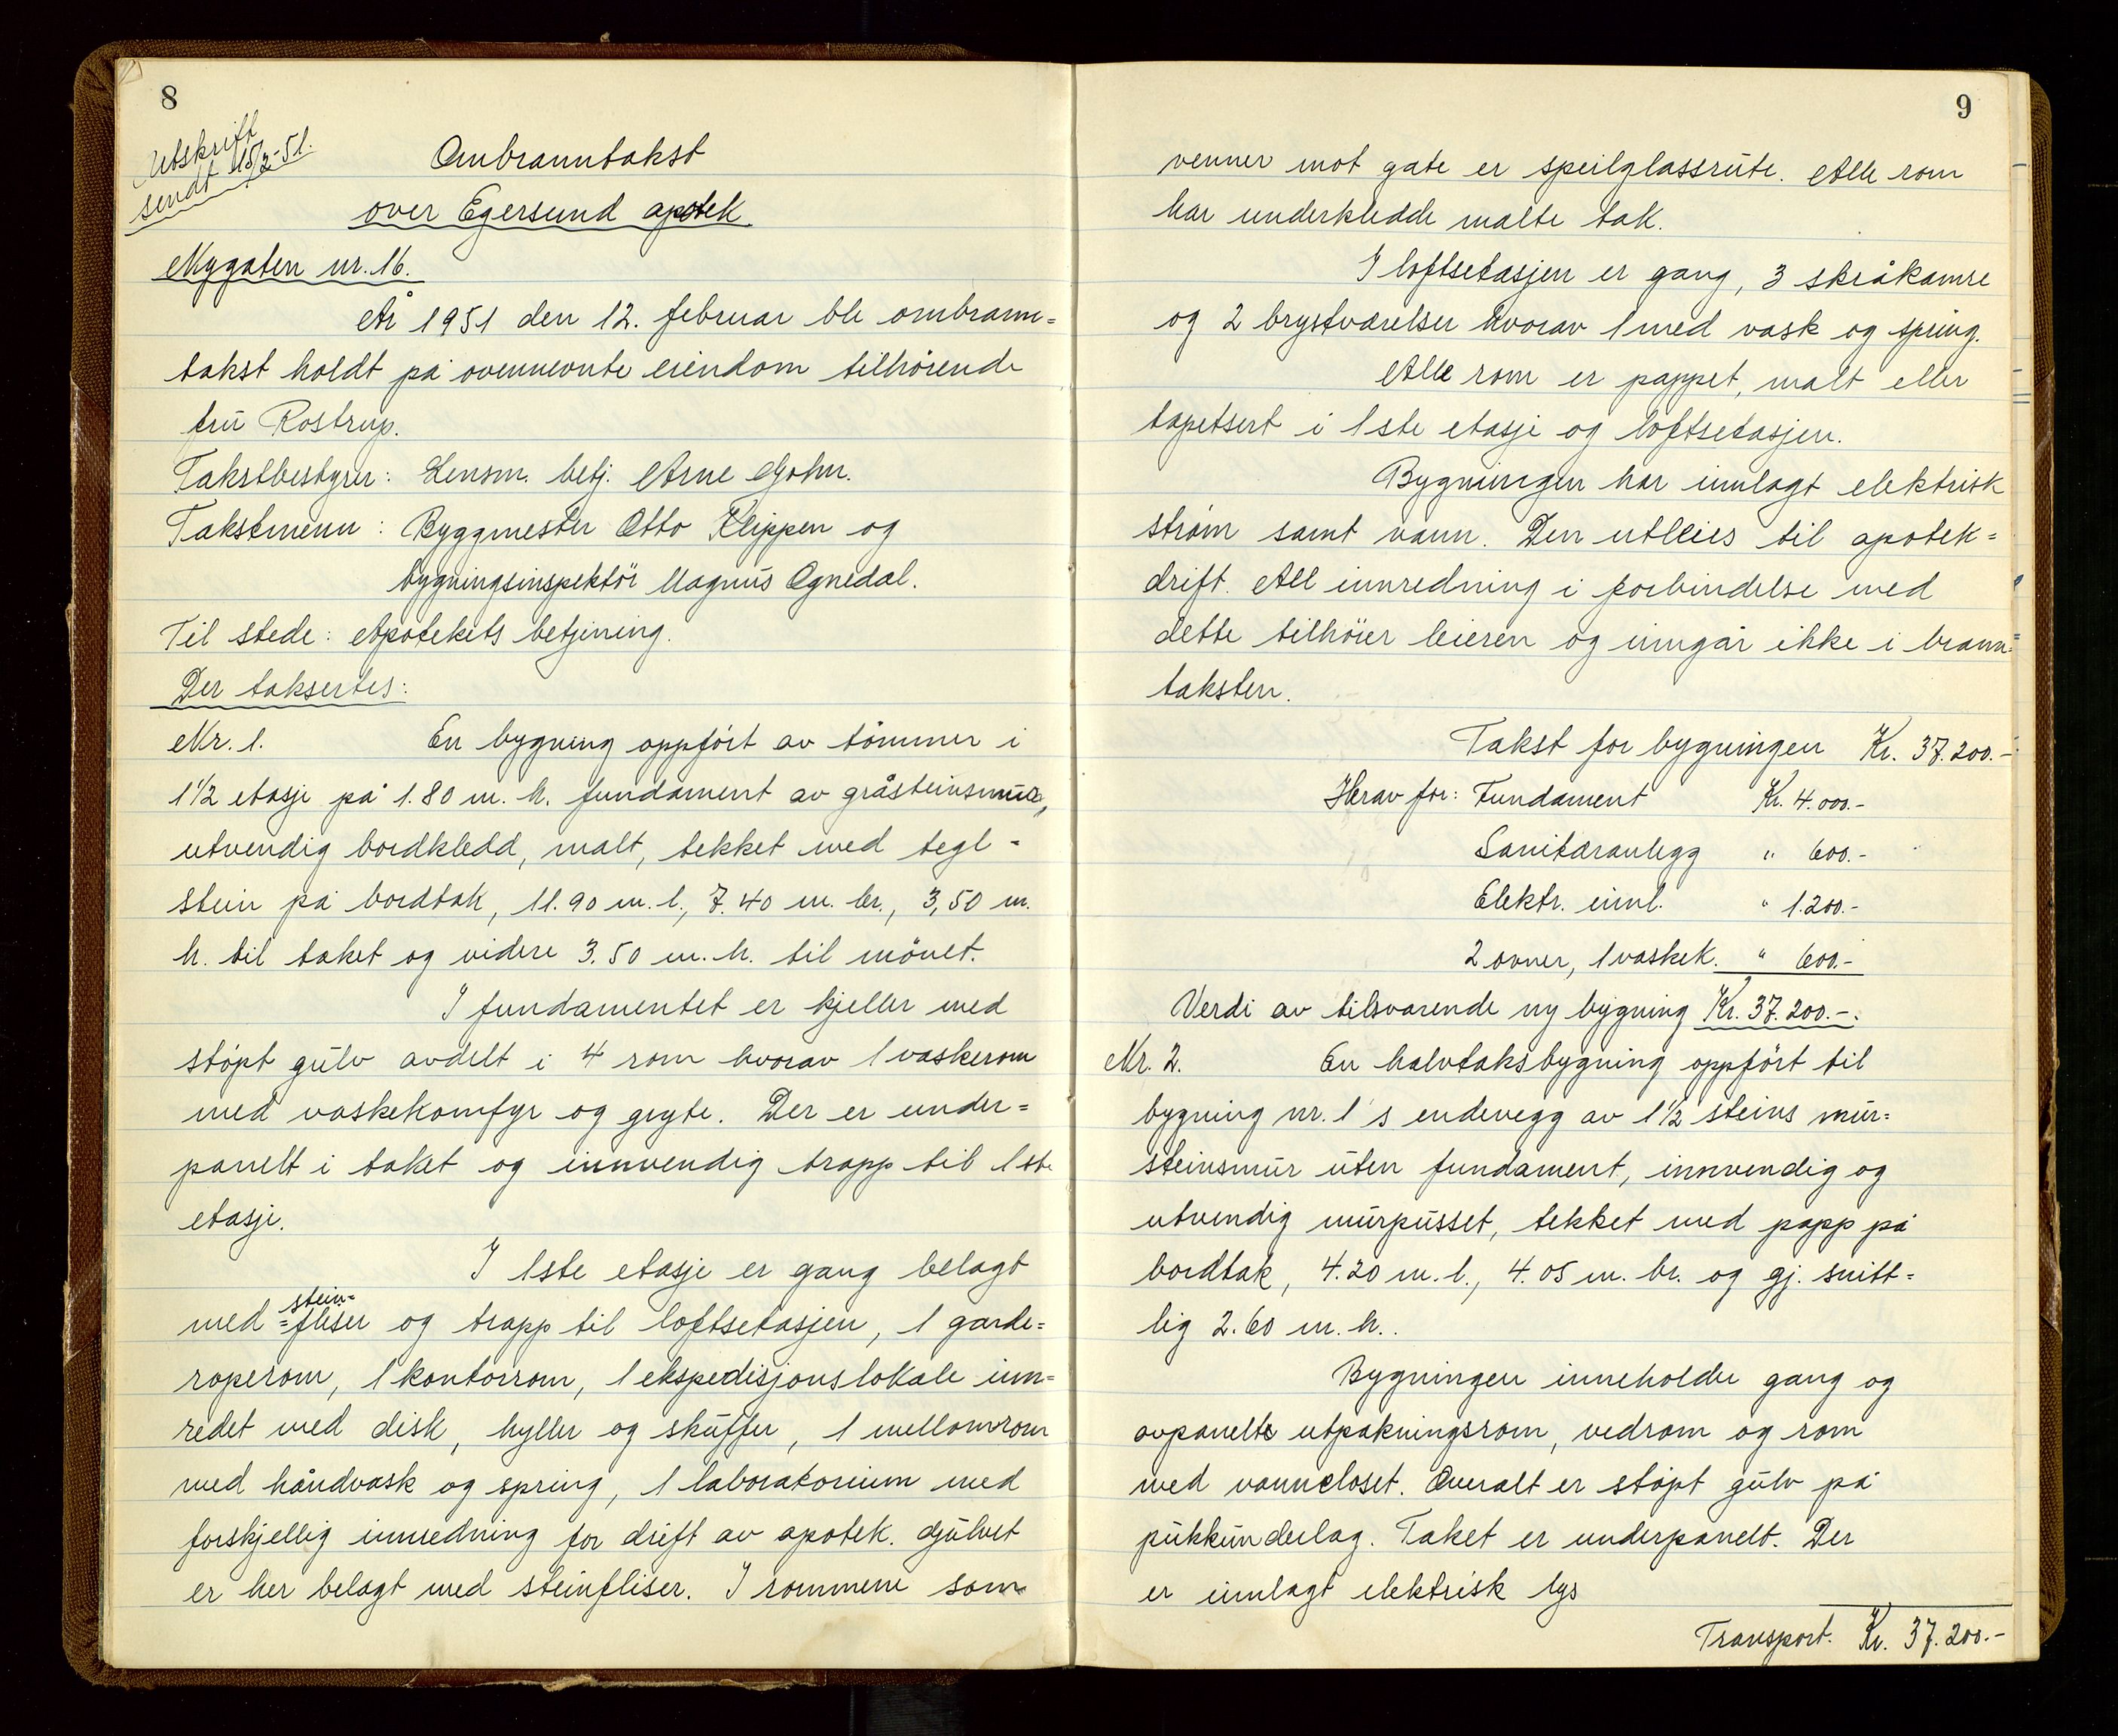 8
Utskrift
sendt 15/2-51.
Ombranntakst
over Egersund apotek.
Nygaten nr. 16.
År 1951 den 12. februar ble ombrann=
takst holdt på ovennevnte eiendom tilhørende
fru Rostrup.
Takstbestyrer: Lensm. betj. Arne Gohn.
Takstmenn: Byggmester Otto Klippen og
bygningsinspektør Magnus Ognedal.
Til stede: Apotekets betjening.
Der taksertes:
Nr. 1. En bygning oppført av tømmer i
1 1/2 etasje på 1.80 m. h. fundament av gråsteinsmur,
utvendig bordkledd, malt, tekket med tegl-
stein på bordtak, 11.90 m. l., 7.40 m. br., 3,50 m.
h. til taket og videre 3.50 m. h. til mønet.
I fundamentet er kjeller med
støpt gulv avdelt i 4 rom hvorav 1 vaskerom
med vaskekomfyr og gryte. Der er under=
panelt i taket og innvendig trapp til 1ste
etasje.
I 1ste etasje er gang belagt
stein=
med =fliser og trapp til loftsetasjen, 1 garde=
roperom, 1 kontorrom, 1 ekspedisjonslokale inn=
redet med disk, hyller og skuffer, 1 mellomrom
med håndvask og spring, 1 laboratorium med
forskjellig innredning for drift av apotek. Gulvet
er her belagt med steinfliser. I rommene som
9
venner mot gate er speilglassrute. Alle rom
har underkledde malte tak.
I loftsetasjen er gang, 3 skråkamre
og 2 brystværelser hvorav 1 med vask og spring.
Alle rom er pappet, malt eller
tapetsert i 1ste etasje og loftsetasjen.
Bygningen har innlagt elektrisk
strøm samt vann. Den utleies til apotek=
drift. All innredning i forbindelse med
dette tilhører leieren og inngår ikke i brann=
taksten.
Takst for bygningen Kr. 37.200.-
Herav for: Fundament Kr. 4.000.-
Sanitæranlegg " 600.-
Elektr. innl. " 1.200.-
2 ovner, 1 vaskek. " 600.-
Verdi av tilsvarende ny bygning Kr. 37.200.-.
Nr. 2. En halvtaksbygning oppført til
bygning nr. 1's endevegg av 1 1/2 steins mur=
steinsmur uten fundament, innvendig og
utvendig murpusset, tekket med papp på
bordtak, 4.20 m. l., 4.05 m. br. og gj. snitt=
lig 2.60 m. h..
Bygningen inneholder gang og
avpanelte utpakningsrom, vedrom og rom
med vanncloset. Overalt er støpt gulv på
pukkunderlag. Taket er underpanelt. Der
er innlagt elektrisk lys
Transport. Kr. 37.200.-